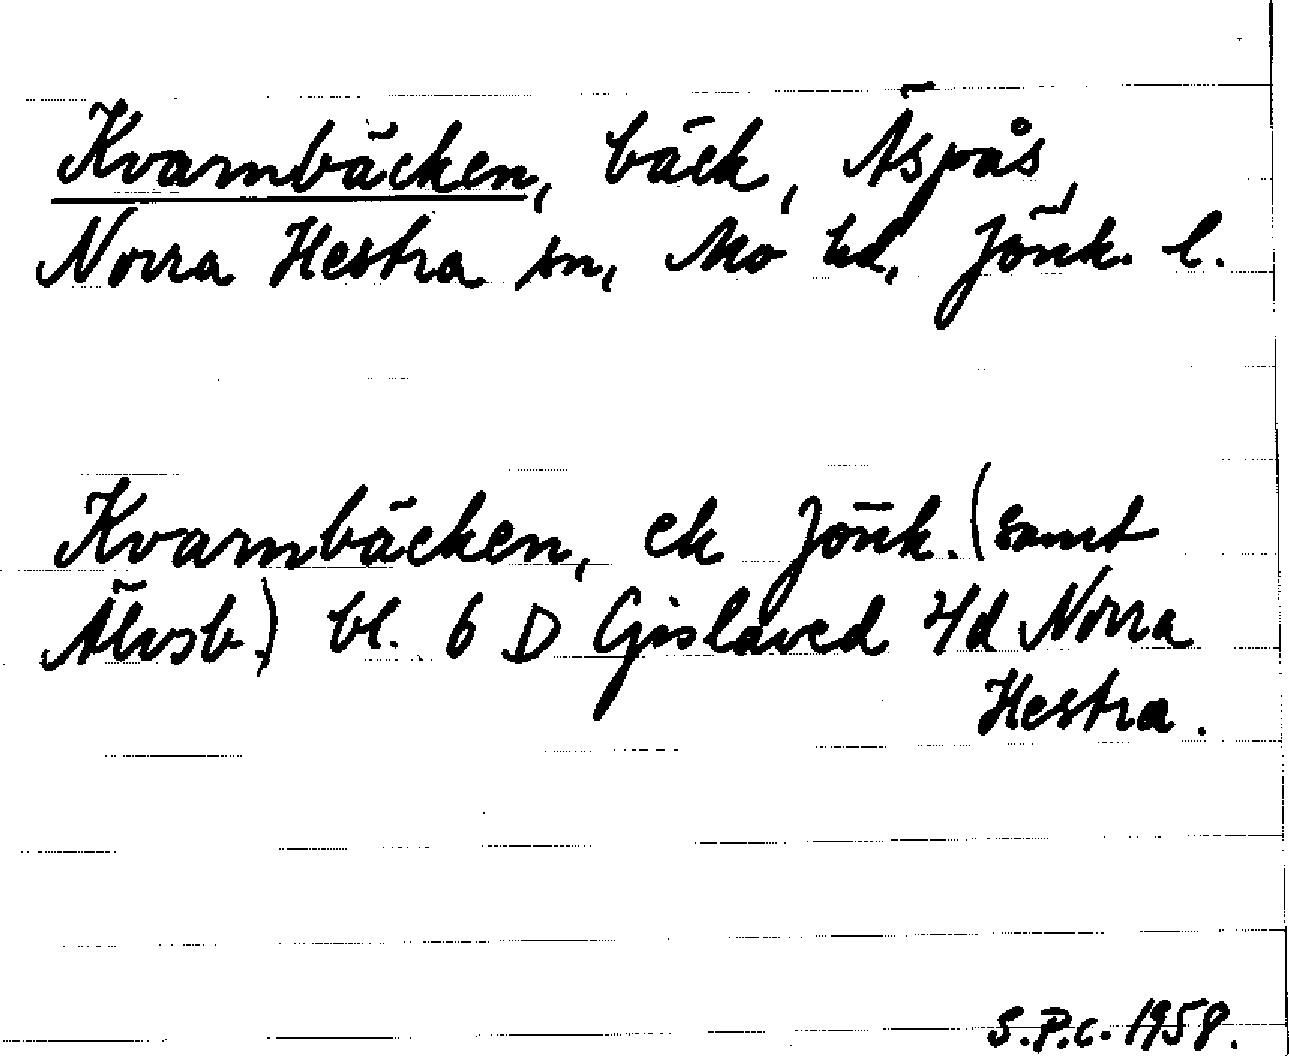 Kvarnbäcken, bäck, Äspås,
Norra Hestra sn, Mo hd, Jönk. l.
Kvarnbäcken, ek Jönk. (samt
Älvsb.) bl. 6 D Gislaved 4d Norra
Hestra.
S.P.C. 1958.